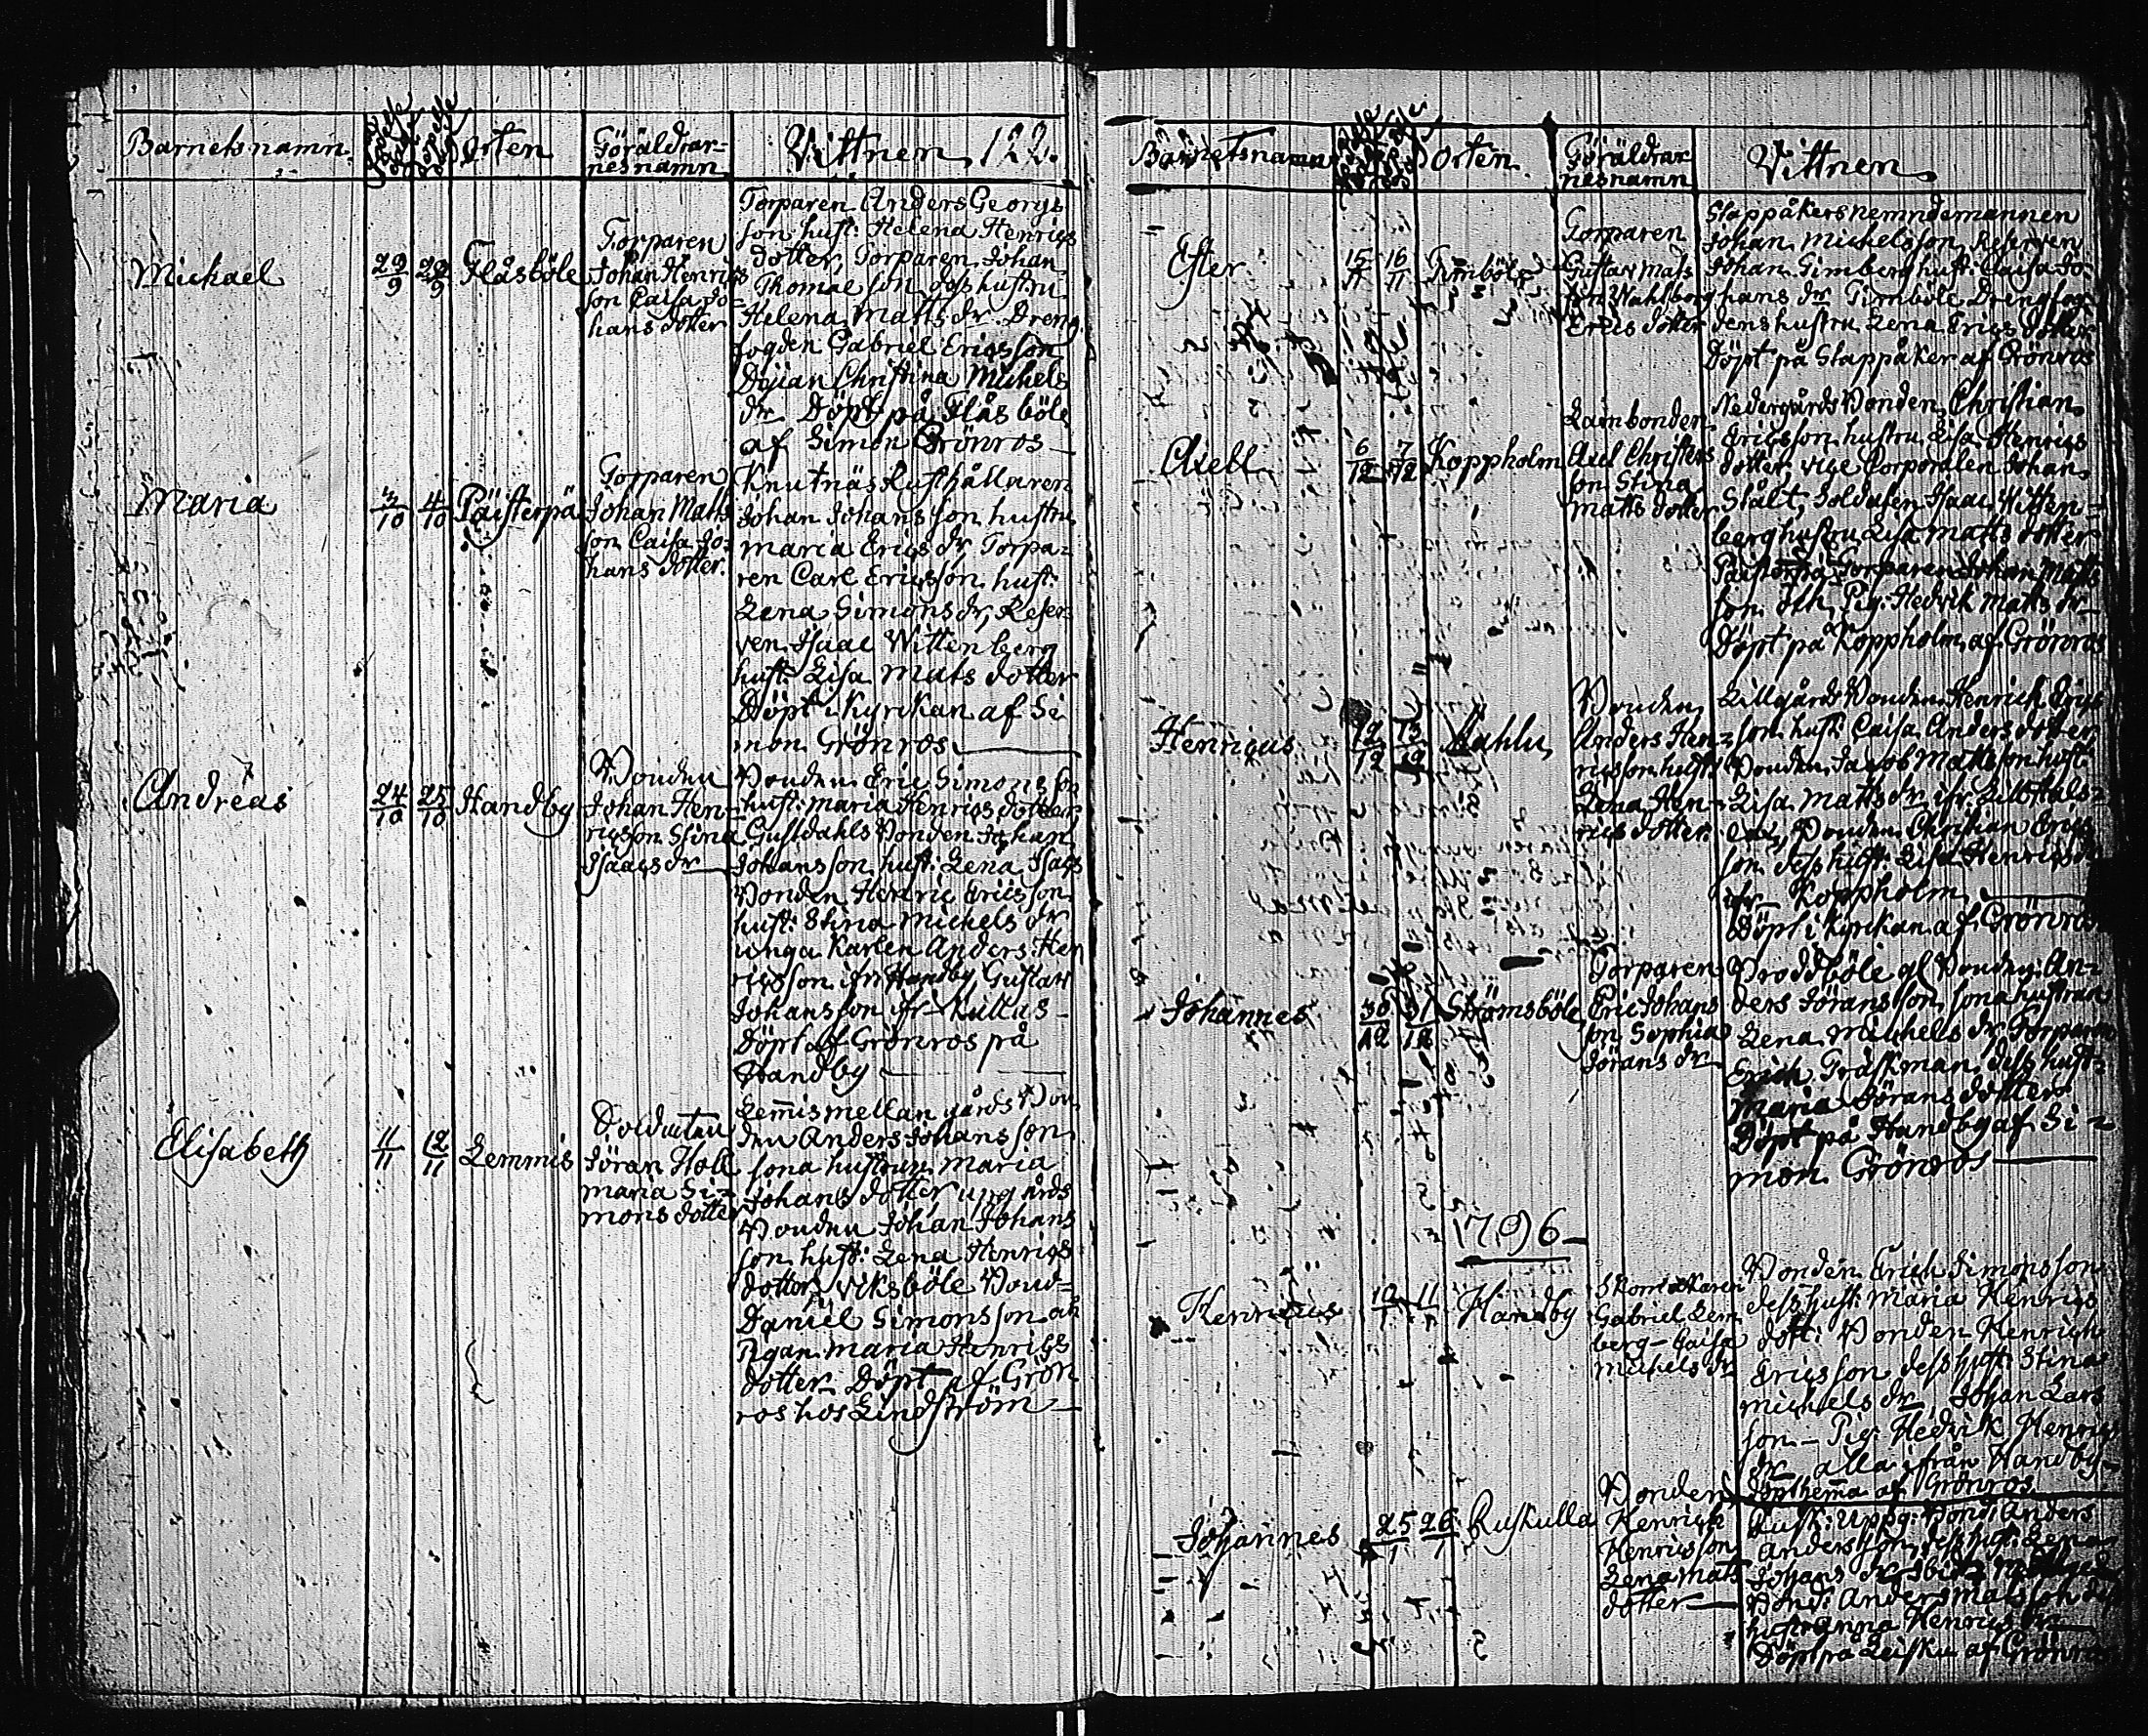 Barnetsnamn.
Orten
Föräldrar-
nesnamn
Vittnen 122.
Michael
29/9 29/9
Flåsböle
Torparen
Johan Henrics
son Caisa Jo-
hans dotter
Torparen Anders Georgs
son hust: Helena Henrics
dotter, Torparen Johan
Thomae son dess hustru
Helena Matts dr Dreng
fogden Gabriel Ericsson
Dejian Christina Michels
dr Döpt på Flåsböle
af Simon Grönros
Maria
3/10 4/10
Päisterpä
Torparen
Johan Matts
son Caisa Jo-
hans dotter.
Knutnäs Rusthållaren
Johan Johansson hustru
Maria Erics dr, Torpa-
ren Carl Ericsson hust:
Lena Simons dr, Reser-
ven Isaac Wittenberg
hust: Lisa Mats dotter
Döpt i Kyrckan af Si
mon Grönros
Andreas
24/10 25/10
Handby
Bonden
Johan Hen-
ricsson Stina
Isaacs dr
Bonden Eric Simonsson
hust: Maria Henrics dotter,
Gustdahls Bonden Johan
Johansson hust: Lena Isacs
Bonden Hendric Ericsson
hust: Stina Michels dr
unga Karlen Anders Hen
ricsson ifr Handby Gustav
Johansson ifr Kullas
Döpt af Grönros på
Handby
Elisabeth
11/11 12/11
Lemmis
Soldaten
Jöran Holl
Maria Si-
mons dotter
Lem̄is mellangårds Bon
den Anders Johansson
sona hustrun Maria
Johans dotter, upgårds
Bonden Johan Johans
son hust: Lena Henrics
dotter, Viksböle Bond=
Daniel Simonsson och
Pigan Maria Henrics
dotter Döpt af Grön
ros hos Lindström
Barnetsnamn
Orten
Föräldrar
nesnamn
Vittnen
Ester
15/11 16/11
Timböle
Torparen
Gustav Mats
son Wahlborg
Erics dotter
Slappåkers nemndemannen
Johan Michelsson, Reserven
Johan Timberg hust: Caisa Jo-
hans dr Timböle Drengfog-
dens hustru Lena Erics dotter
Döpt på Slappåker af Grönros
Axell
6/12 7/12
Koppholm
Lambonden
Axel Christers
son Stina
Matts dotter
Nedergårds Bonden Christian
Ericsson hustru Lisa Henrics
dotter, vice Corporalen Johan
Stålt, Soldaten Isaac Witten-
berg hustru Lisa Matts dotter
Päisterpä Torparen Johan Matts
son och Pig: Hedvik Matts dr
Döpt på Koppholm af Grönros
Henricus
12/12 13/12
Mahlu
Bonden
Anders Hen-
ricsson hust:
Lena Hen-
rics dotter
Lillgårds Bonden Henrich Erics
son hust: Caisa Anders dotter
Bonden Jacob Mattsson hust:
Lisa Matts dr ifr
Bonden Christian Erics
son dess hust: Lisa Henrics dr
ifr Koppholm
Döpt i Kyrckan af Grönros
Johannes
30/12 31/12
Strömsböle
Torparen
Eric Johans
son Sophia
Jörans dr
Broddböle gl Bonden An-
ders Jöransson sona hustrun
Lena Michels dr Torparen
Erich Träskman dess hust-
Maria Jörans dotter
Döpt på Handby af Si-
mon Grönros
1796
Henricus
10/1 11/1
Handby
Skomakaren
Gabriel Lem
berg - Caisa
Michels dr
Bonden Erich Simonsson
dess hust: Maria Henrics
dott: Bonden Henrich
Ericsson dess hust: Stina
Michels dr, Johan Lars
son - Pig: Hedvik Henrics
dr alla ifrån Handby
Döpt hem̄a af Grönros
Johannes
25/1 26/1
Ruskulla
Bonden
Henrich
Henricsson
Lena Mats
dotter
Rusk: Uppg: Bond: Anders
Andersson, dess hust: Lena
Johans dr
Bond: Anders Matsson dess
hustr Anna Henrics dr
Döpt på Leisku af Grönros